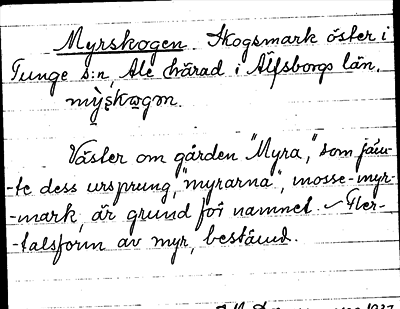 Myrskogen. Skogsmark öster i
Tunge s:n, Ale härad i Älfsborgs län.
Väster om gården "Myra," som jäm-
-te dess ursprung, "myrarna", mosse-myr-
-mark, är grund för namnet. ~ Fler-
-talsform av myr, bestämd.